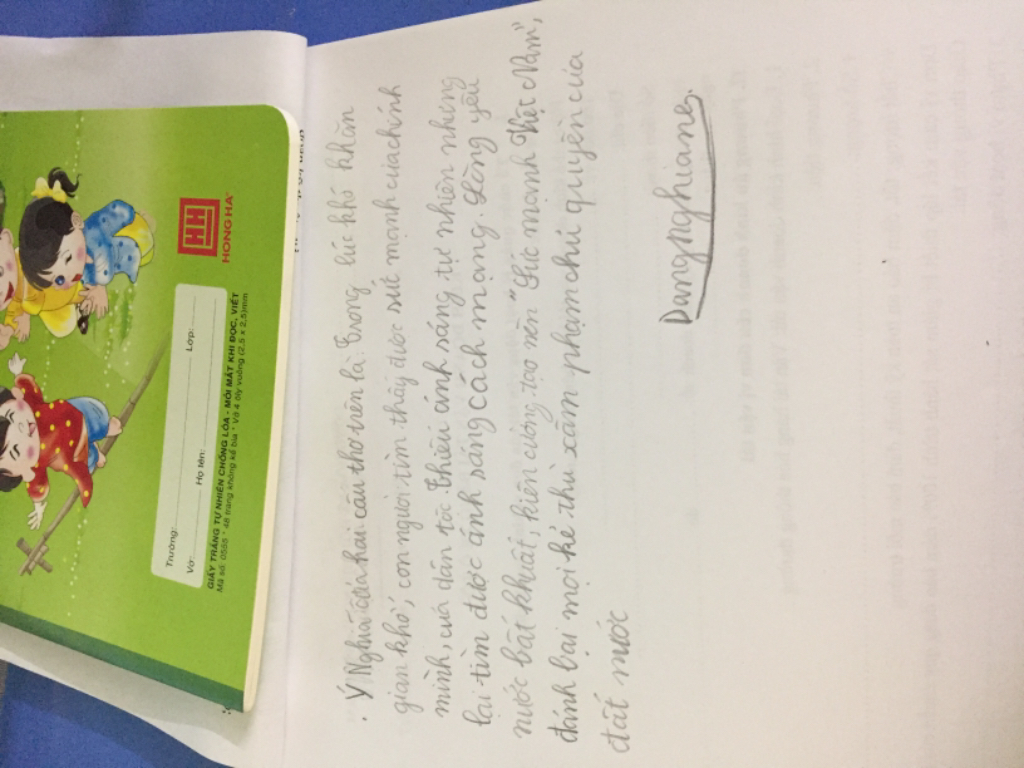 HH
HONG HA
Trường:
Lớp:
Vở:
Họ tên:
GIẤY TRẮNG TỰ NHIÊN CHỐNG LÓA - MỎI MẮT KHI ĐỌC, VIẾT
Mã số: 0568 * 48 trang không kể bìa * Vở 4 ôly vuông (2,5 x 2,5)mm
. Ý Nghĩa của hai câu thơ trên là: Trong lúc khó khăn
gian khổ, con người tìm thấy được sức mạnh của chính
mình, của dân tộc. Thiếu ánh sáng tự nhiên nhưng
lại tìm được ánh sáng cách mạng. Lòng yêu
nước bất khuất, kiên cường tạo nên "Sức mạnh Việt Nam",
đánh bại mọi kẻ thù xâm phạm chủ quyền của
đất nước
Dangnghiang.